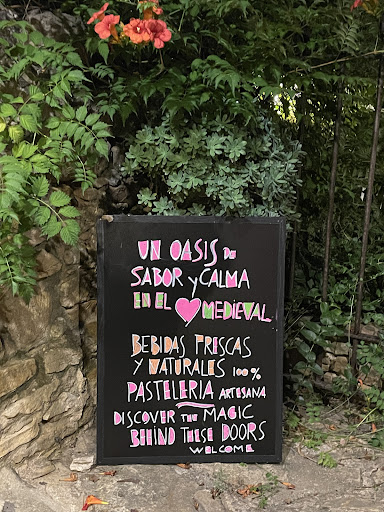 UN OASIS DE
SABOR y CALMA
EN EL ♥ MEDIEVAL
BEBIDAS FRESCAS
Y NATURALES 100%
PASTELERIA ARTESANA
DISCOVER THE MAGIC
BEHIND THESE DOORS
WELCOME